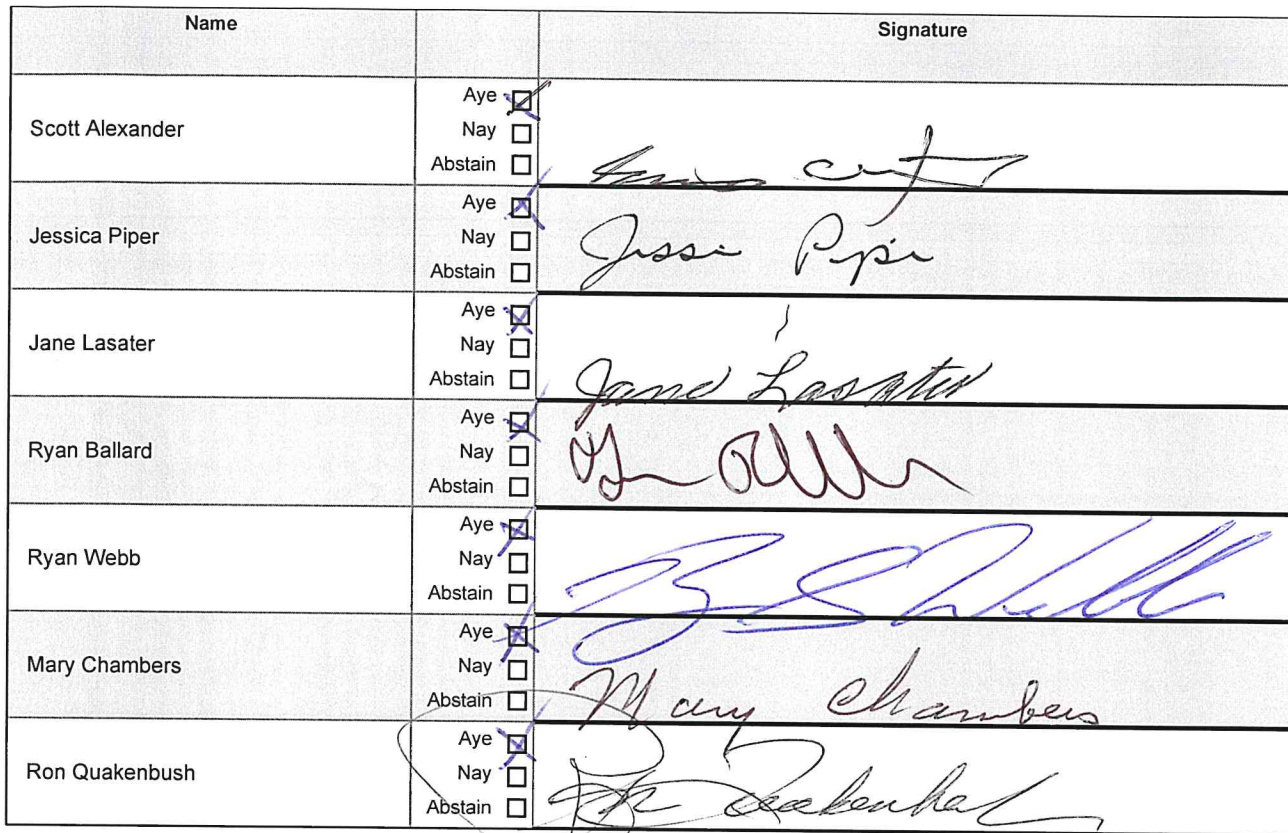 Name Signature
Scott Alexander
Aye
Nay
Abstain
Jessica Piper
Aye
Nay
Abstain
Jessi Pipe
Jane Lasater
Aye
Nay
Abstain
Jane Lasater
Ryan Ballard
Aye
Nay
Abstain
Ryan Webb
Aye
Nay
Abstain
Webb
Mary Chambers
Aye
Nay
Abstain
Mary Chambers
Ron Quakenbush
Aye
Nay
Abstain